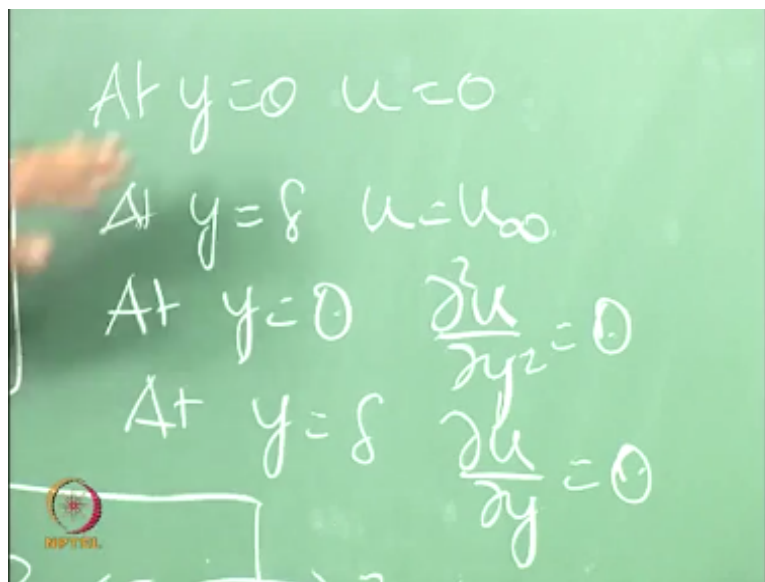 At y=0 u=0
At y=δ u=u∞
At y=0 ∂²u/∂y²=0
At y=δ ∂u/∂y=0
NPTEL